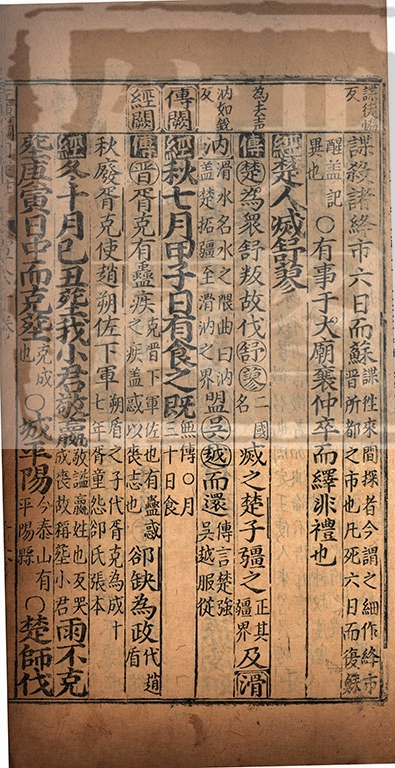 諜徒協反
諜殺諸絳市六日而蘇諜徃來間探者今謂之細作絳市晉所都之市也凡死六日而復蘇
醒蓋記異也○有事于大廟襄仲卒而繹非禮也
經楚人滅舒蓼
為去声
傳楚為衆舒叛故伐舒蓼二國名滅之楚子疆之正其疆界及滑
汭如銳反
汭滑水名水之隈曲曰汭蓋楚拓疆至滑汭之界盟吳越而還傳言楚強吳越服從
傳闕
經秋七月甲子日有食之既無傳○月三十日食
經闕
傳晉胥克有蠱疾克晉下軍佐也有蠱惑之疾蓋惑以喪志也郤缺為政代趙盾
秋廢胥克使趙朔佐下軍朔盾之子代胥克為成十七年胥童怨郤氏張本
經冬十月己丑葬我小君敬嬴敬諡嬴姓也反哭成喪故稱葬小君雨不克
葬庚寅日中而克葬克成也○城平陽今泰山有平陽縣○楚師伐